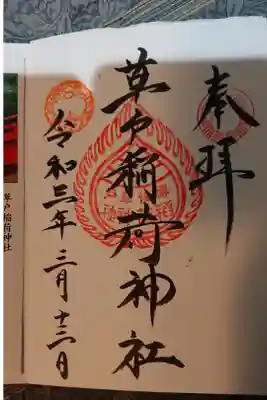 奉拝
草戸稲荷神社
令和三年 三月 十三日
草戸稲荷神社